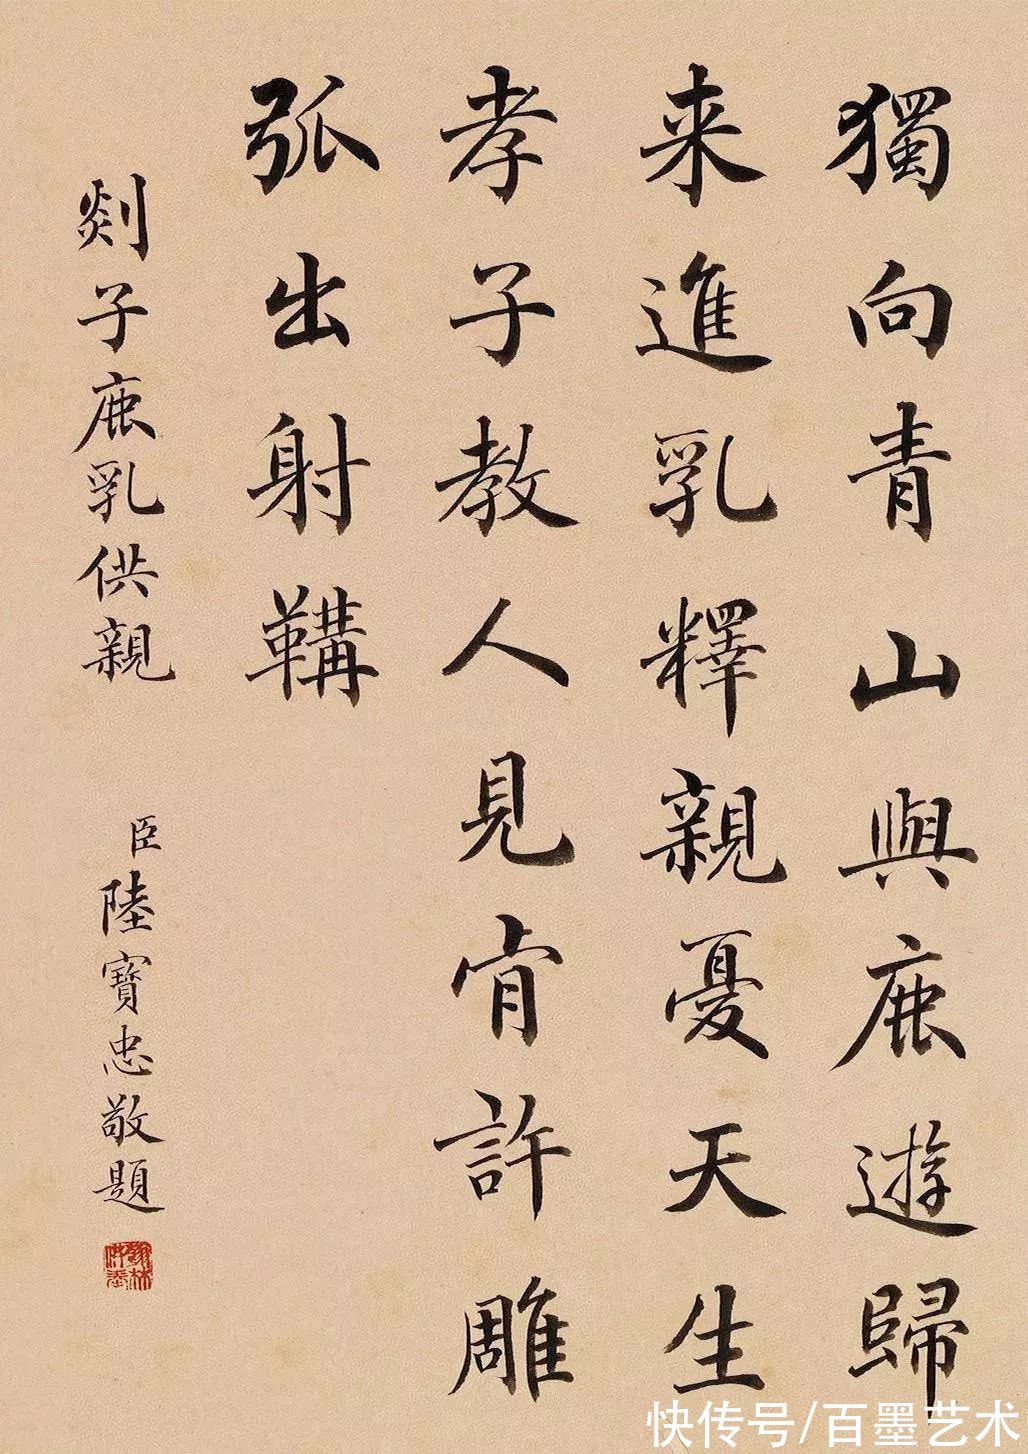 獨向青山與鹿遊歸
来進乳釋親憂天生
孝子教人見肯許雕
弧出射鞲
剡子鹿乳供親
臣陸寶忠敬題
快传号/百墨艺术